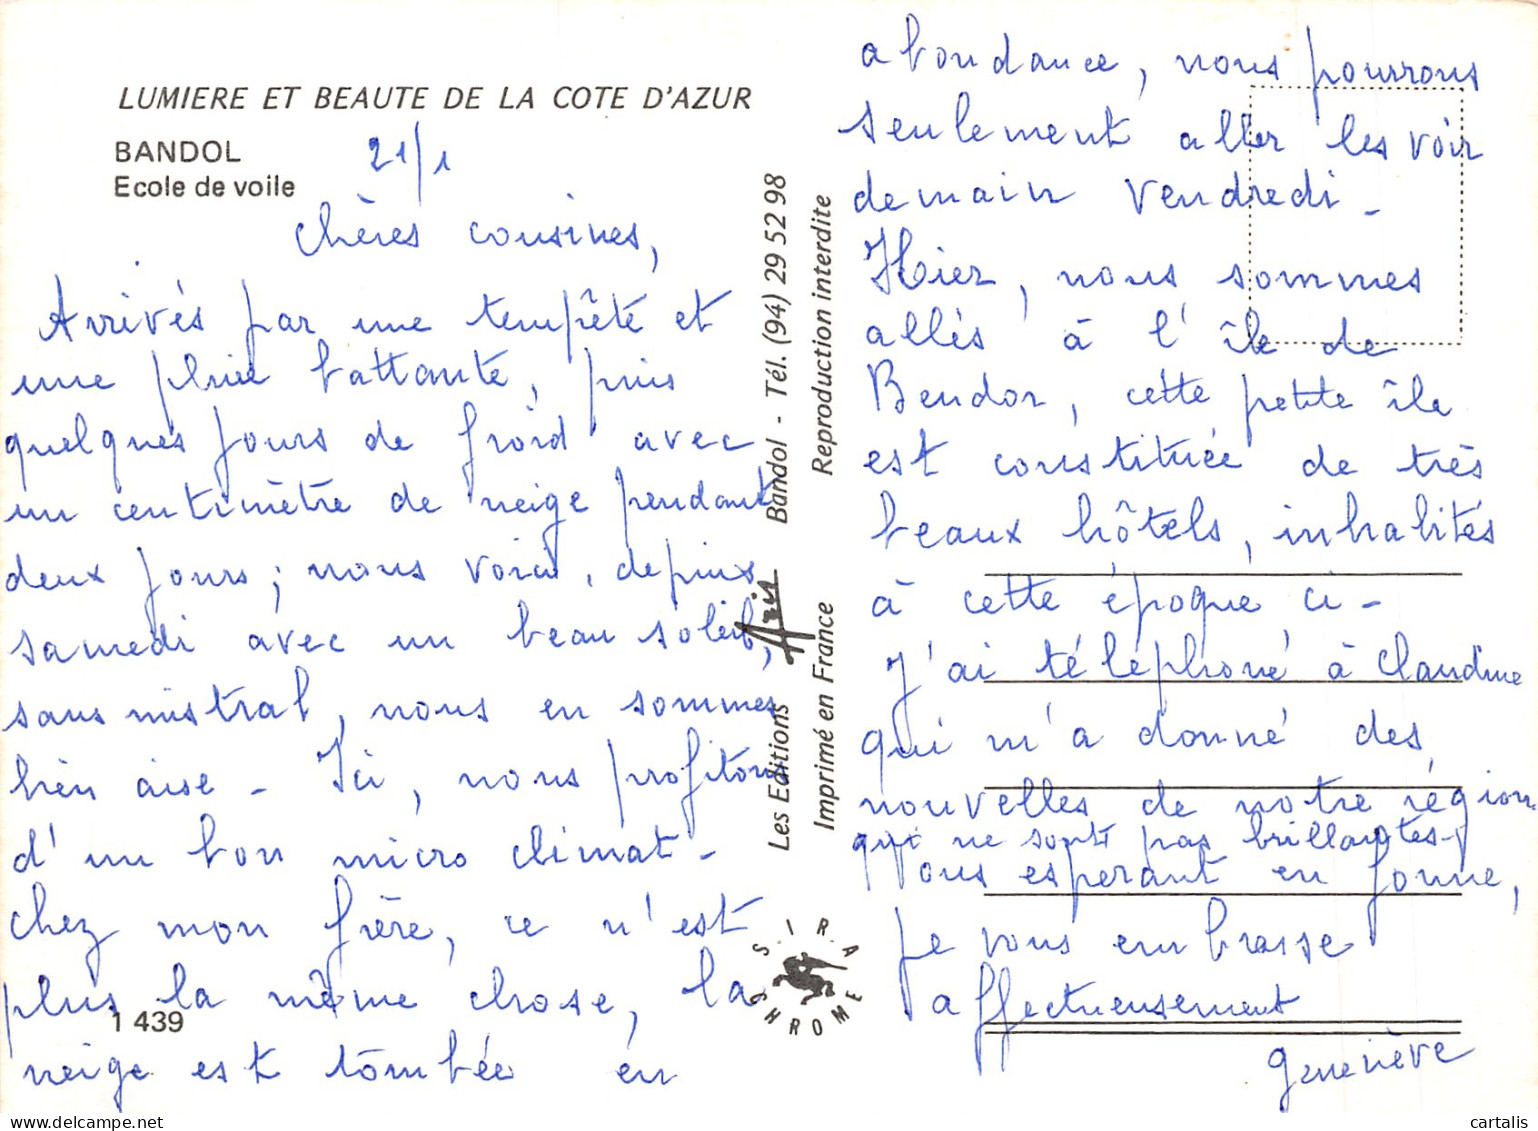 LUMIERE ET BEAUTE DE LA COTE D'AZUR
BANDOL
Ecole de voile
21/1
Chères cousines,
Arrivés par une tempête et
une pluie battante, puis
quelques jours de froid avec
un centimètre de neige pendant
deux jours; nous voici, depuis
samedi avec un beau soleil,
sans mistral, nous en sommes
bien aise - Ici, nous profitons
d'un bon micro climat -
chez mon frère, ce n'est
plus la même chose, la
neige est tombée en
1 439
abondance, nous pourrons
seulement aller les voir
demain vendredi -
Hier, nous sommes
allés à l'île de
Bendor, cette petite île
est constituée de très
beaux hôtels, inhabités
à cette époque ci -
J'ai téléphoné à Claudine
qui m'a donné des
nouvelles de notre région
qui ne sont pas brillantes -
Vous espérant en forme,
Je vous embrasse
affectueusement
Geneviève
Les Editions Aris Bandol - Tél. (94) 29 52 98
Imprimé en France Reproduction interdite
S.I.R.A
CHROME
© cartalis | www.delcampe.net